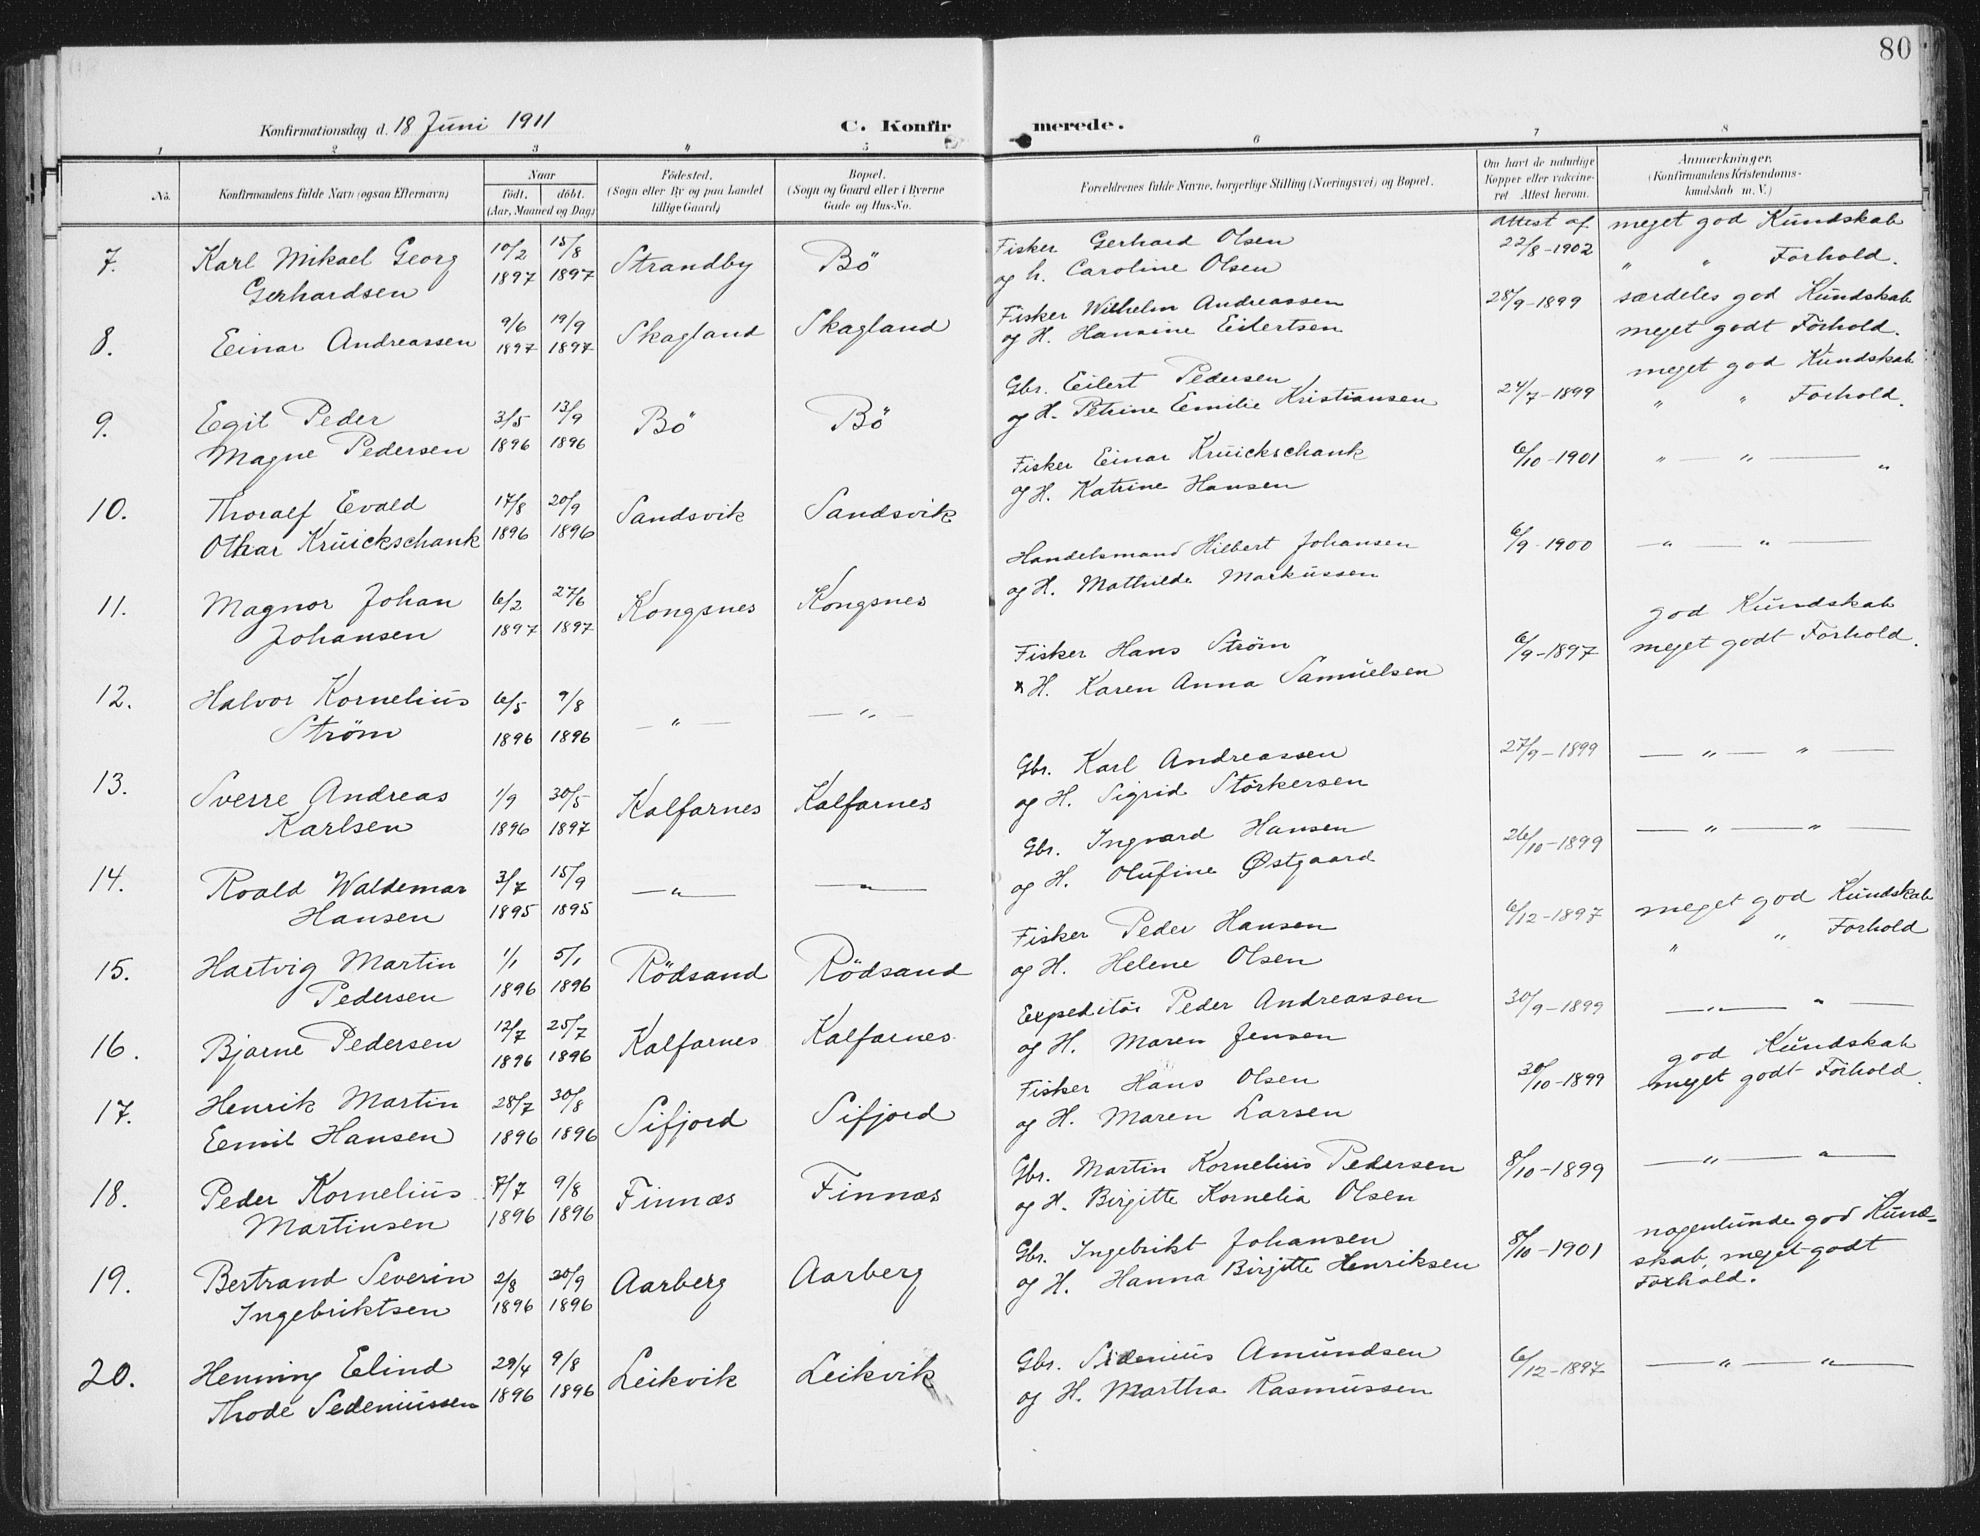 80
Konfirmationsdag d. 18 Juni 1911 C. Konfirmerede.
1 2 3 4 5 6 7 8
No. Konfirmandens fulde Navn (ogsaa Efternavn) Naar født. døbt. (Aar, Maaned og Dag) Fødested. (Sogn eller By og paa Landet tillige Gaard) Bopæl. (Sogn og Gaard eller i Byerne Gade og Hus-No. Forældrenes fulde Navne, borgerlige Stilling (Næringsvei) og Bopæl. Om havt de naturlige Kopper eller vaccineret Attest herom. Anmerkninger. (Konfirmandens Kristendomskundskab m. V.)
7. Karl Mikael Georg 10/2 15/8 Strandby Bö Fisker Gerhard Olsen Attest af 22/8-1902 meget god Kundskab
Gerhardsen 1897 1897 og h. Caroline Olsen " " Forhold.
8. Einar Andreassen 9/6 19/9 Skagland Skagland Fisker Wilhelm Andreassen 28/9-1899 særdeles god Kundskab
1897 1897 og H. Hansine Eilertsen meget godt Forhold.
9. Egil Peder 3/5 13/9 Bö Bö Gbr. Eilert Pedersen 24/7-1899 meget god Kundskab
Magne Pedersen 1896 1896 og H. Petrine Emilie Kristiansen " " Forhold.
10. Thoralf Evald 17/8 20/9 Sandsvik Sandsvik Fisker Einar Kruickschank 6/10-1901 " — " — "
Othar Kruickschank 1896 1896 og H. Katrine Hansen
11. Magnor Johan 6/2 27/6 Kongsnes Kongsnes Handelsmand Hilbert Johansen 6/9-1900 — " — " —
Johansen 1897 1897 og H. Mathilde Markussen
12. Halvor Kornelius 6/5 9/8 — " — — " — Fisker Hans Strøm 6/9-1897 god Kundskab
Strøm 1896 1896 H. Karen Anna Samuelsen meget godt Forhold.
13. Sverre Andreas 1/9 30/5 Kalfarnes Kalfarnes Gbr. Karl Andreassen 27/9-1899 — " — " —
Karlsen 1896 1897 og H. Sigrid Störkersen
14. Roald Waldemar 3/7 15/9 — " — — " — Gbr. Ingvard Hansen 26/10-1899 — " — " —
Hansen 1895 1895 og H. Olufine Østgaard
15. Hartvig Martin 1/1 5/1 Rödsand Rödsand Fisker Peder Hansen 6/12-1897 meget god Kundskab
Pedersen 1896 1896 og H. Helene Olsen " " Forhold
16. Bjarne Pedersen 12/7 25/7 Kalfarnes Kalfarnes Expeditör Peder Andreassen 30/9-1899 — " — " —
1896 1896 og H. Maren Jensen
17. Henrik Martin 28/7 30/8 Sifjord Sifjord Fisker Hans Olsen 30/10-1899 god Kundskab
Emil Hansen 1896 1896 og H. Maren Larsen meget godt Forhold.
18. Peder Kornelius 7/7 9/8 Finnæs Finnæs Gbr. Martin Kornelius Pedersen 8/10-1899 — " — " —
Martinsen 1896 1896 og H. Birgitte Kornelia Olsen
19. Bertrand Severin 2/8 20/9 Aarberg Aarberg Gbr. Ingebrikt Johansen 8/10-1901 nogenlunde god Kund-
Ingebriktsen 1896 1896 og H. Hanna Birgitte Henriksen skab, meget godt
Forhold.
20. Henning Elind 29/4 9/8 Leikvik Leikvik Gbr. Sedenius Amundsen 6/12-1897 — " — " —
Thode Sedeniussen 1896 1896 og H. Martha Rasmussen